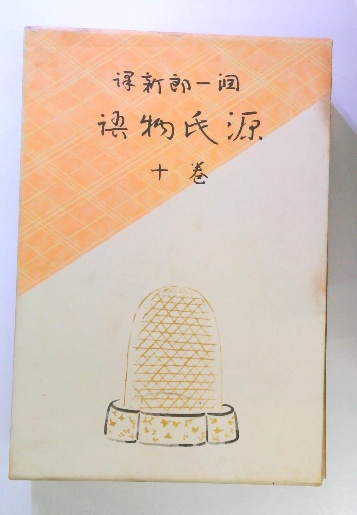 潤一郎新譯
源氏物語
巻十